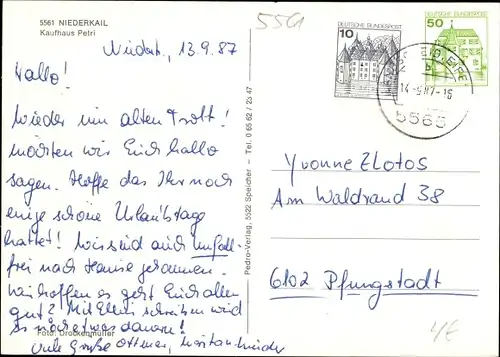 5561 NIEDERKAIL
Kaufhaus Petri
5561
13.9.87
Hallo!
Wieder im alten Trott!
möchten wir Euch hallo
sagen. Hoffe das Ihr noch
einige schöne Urlaubstage
hattet! Wir sind auch unfall-
frei nach Hause gekommen.
Wir hoffen es geht Euch allen
gut? Mit schreiben wird
es noch etwas dauern!
Viele Grüße
Foto: Drockenmüller
Pedro-Verlag, 5522 Speicher – Tel. 0 65 62 / 23 47
DEUTSCHE BUNDESPOST
10
50
14.-9.87-16
b
5565
Yvonne Zlotos
Am Waldrand 38
6102 Pfungstadt
4€